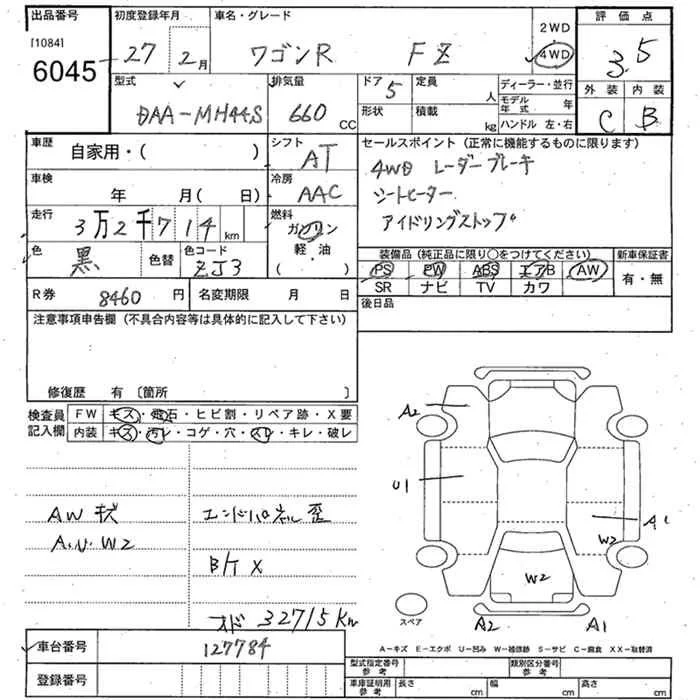 出品番号 初度登録年月 車名・グレード 評価点
[1084] 6045 27年 2月 ワゴンR FZ 2WD 4WD 3.5
型式 排気量 ドア 定員 ディーラー・並行 外装 内装
DAA-MH44S 660 CC 5 人 モデル年式 年 C B
形状 積載 kg ハンドル 左・右
車歴 自家用・( ) シフト AT セールスポイント (正常に機能するものに限ります)
車検 年 月( 日) 冷房 AAC 4WD レーダーブレーキ
シートヒーター
走行 3万2千714km 燃料 ガソリン 軽・油 ( ) アイドリングストップ
色 黒 色替 色コード ZJ3 装備品 (純正品に限り○をつけてください) 新車保証書
PS PW ABS エアB AW 有・無
R券 8460円 名変期限 月 日 SR ナビ TV カワ
注意事項申告欄 (不具合内容等は具体的に記入して下さい) 後日品
修復歴 有 〔箇所 〕
検査員記入欄 FW キズ・飛石・ヒビ割・リペア跡・X要
内装 キズ・汚レ・コゲ・穴・スレ・キレ・破レ
A2
U1
A1
W2
W2
AW キズ エンドパネル歪
A.U.W2
B/ケ X
オド 32715Km
スペア A2 A1
車台番号 127784 A−キズ E−エクボ U−凹み W−補修跡 S−サビ C−腐食 XX−取替済
登録番号 型式指定番号 参考 類別区分番号 参考
車庫証明用 参考 長さ cm 幅 cm 高さ cm